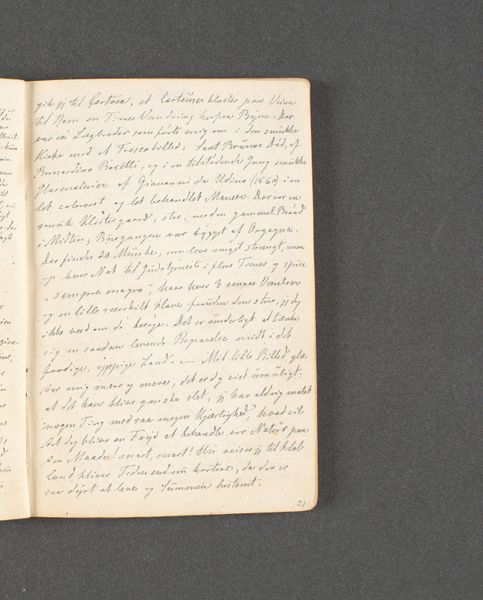 gik jeg til Certosa, et Certosaer kloster paa Veien
til Rom en Times Vandring herfra Byen. Der
var en Lægbroder som førte mig om i den smukke
Kirke med et Frescobilled: Sanct Brunos Død, af
Bernardino Pocetti, og i en tilstødende Gang smukke
Glasmalerier af Giovanni da Udine (1560) i en
let coloreret og let behandlet Maneer. Der var en
smuk Klostergaard, stor, med en gammel Brønd
i Midten; Buegangen var bygget af Orgagna.
Der findes 20 Munke, som leve meget strengt, maa
op hver Nat til Gudstjeneste i flere Timer og spise
"sempre magro"; have hver 3 smaae Værelser
og en lille særskilt Have foruden den store, jeg dog
ikke veed om de besøge. Det er underligt at tænke
sig en saadan levende Begravelse midt i det
frodige, yppige Land. — Mit lille Billed glæ-
der mig mere og mere, det er dog vist umuligt
at det kan blive ganske slet; jeg har aldrig malet
nogen Ting med saa megen Kjærlighed, hvad vil
det dog blive en Fryd at behandle vor Natur paa
den Maade! snart, snart! Nu reiser jeg til
land bliver Tiden endnu kortere, da der er
saa dyrt at leve og Summen bestemt.
31